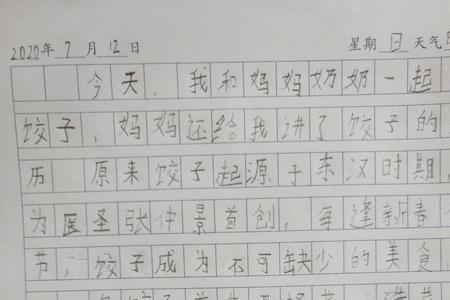 2020年7月12日 星期日 天气
今天，我和妈妈奶奶一起
饺子，妈妈还给我讲了饺子的
历 原来饺子起源于东汉时期，
为医圣张仲景首创。每逢新春
节，饺子成为不可缺少的美食